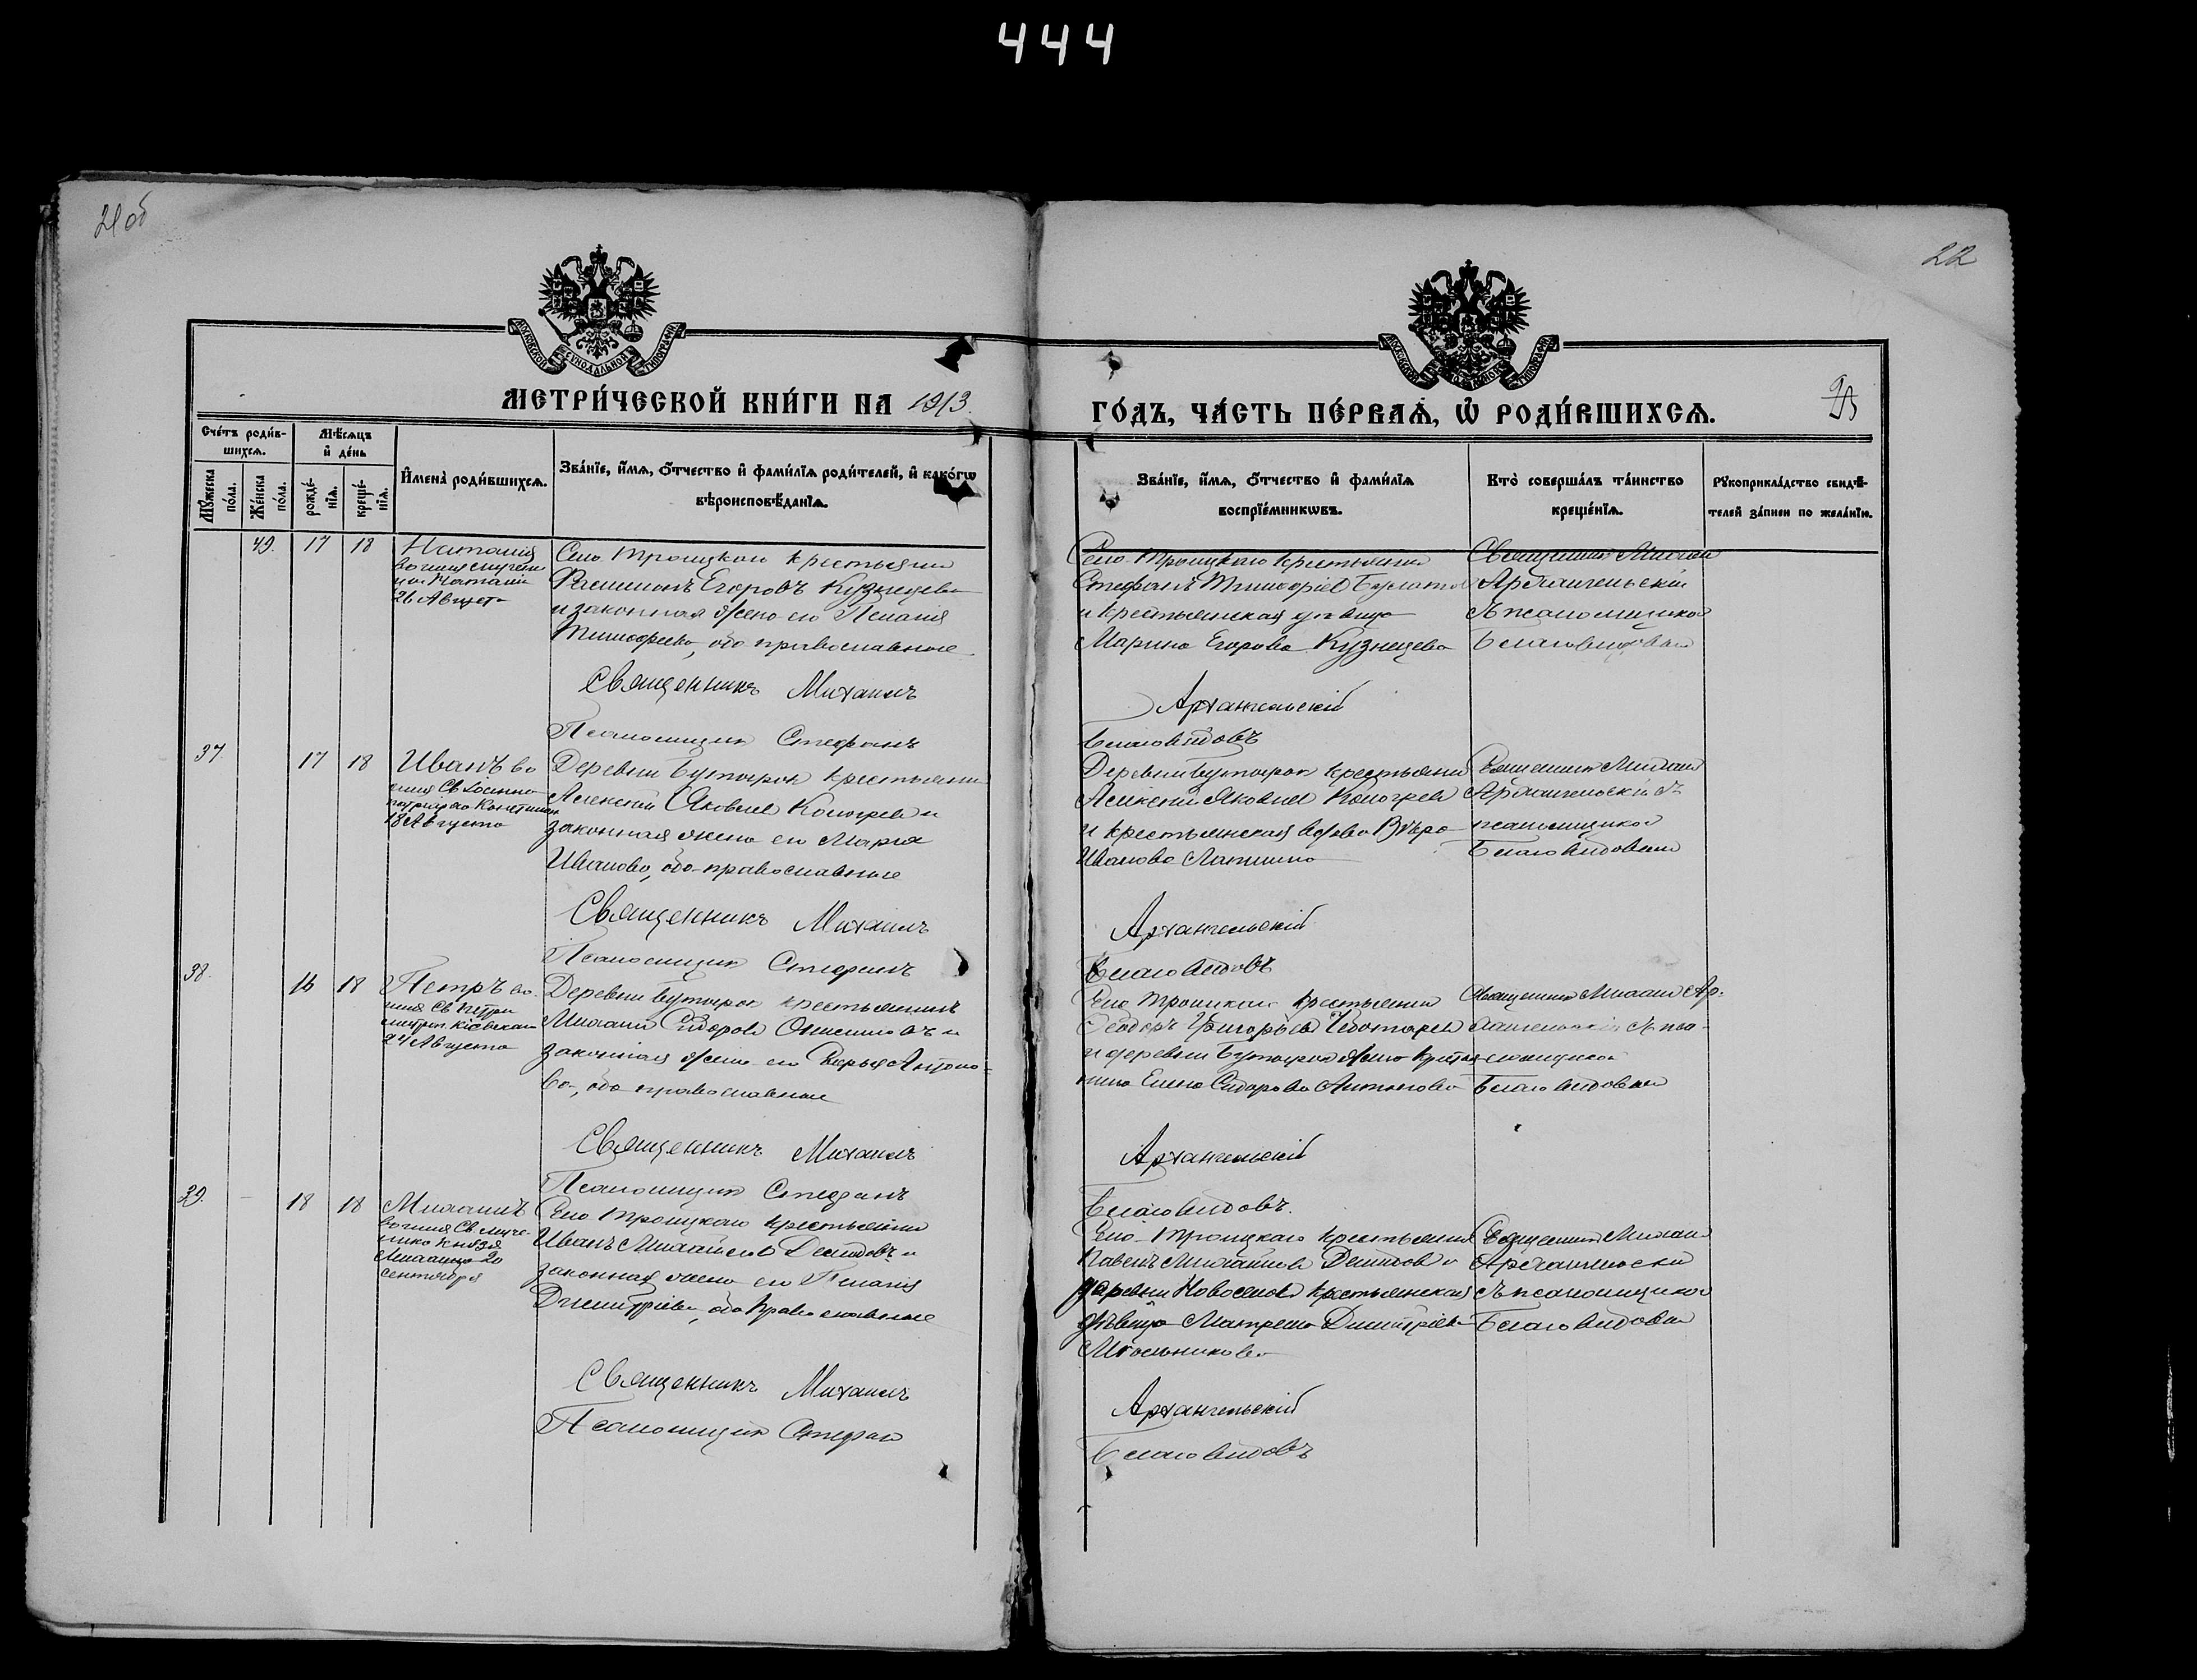 444
21об
22
МОСКОВСКОЙ СѴНОДАЛЬНОЙ ТИПОГРАФІИ
МОСКОВСКОЙ СѴНОДАЛЬНОЙ ТИПОГРАФІИ
МЕТРИ́ЧЕСКОЙ КНИ́ГИ НА 1913.
ГО́ДЪ, ЧА́СТЬ ПЕ́РВАѦ, Ѡ҆ РОДИ́ВШИХСѦ.
Сче́тъ роди́в-
шихсѧ.
Мѣ́сѧцъ
и҆ де́нь
Мꙋ́жеска по́ла.
Же́нска по́ла.
рожде́-нїѧ.
креще́-нїѧ.
И҆мена̀ роди́вшихсѧ.
Зва́нїе, и҆́мѧ, ѻ҆́тчество и҆ фами́лїѧ роди́телей, и҆ како́гѡ
вѣроисповѣ́данїѧ.
Зва́нїе, и҆́мѧ, ѻ҆́тчество и҆ фами́лїѧ
воспрїе́мникѡвъ.
Кто̀ соверша́лъ та́инство
креще́нїѧ.
Рꙋкоприкла́дство свидѣ́-
телей за́писи по жела́нїю.
49. 17 18
Наталія
во имя мучени
цы Наталіи
26 Августа
Села Троицкаго крестьянин
Филимонъ Егоровъ Кузнецовъ
и законная жена его Пелагія
Тимофеева, оба православные
Священникъ Михаилъ
Псаломщик Стефанъ
Села Троицкаго крестьянин
Стефанъ Григоріев Булатов
и крестьянская девица
Марина Егорова Кузнецова
Архангельскій
Благовидовъ
Священник Михаил
Архангельскій
съ псаломщиком
Благовидовым
37. 17 18
Иванъ во
имя Св Іоанна
патріарха Константин
18 Августа
Деревни Бутырок крестьянин
Алексей Яковлев Кочергев и
законная жена его Мария
Иванова, оба православные
Священникъ Михаилъ
Псаломщик Стефанъ
Деревни Бутырок крестьянин
Алексей Яковлев
и крестьянская вдова Вѣра
Иванова Лапшина
Архангельскій
Благовидовъ
Священник Михаил
Архангельскій съ
псаломщиком
Благовидовым
38. 16 18
Петръ во
имя Св Петра
митроп. Кіевскаго
24 Августа
Деревни Бутырок крестьянинъ
Михаил Сидоров и
законная жена его Дарья Антоно-
ва, оба православные
Священникъ Михаилъ
Псаломщик Стефанъ
Села Троицкаго крестьянин
Ѳеодоръ Григорьев Чеботарев
и деревни Бутырок жена крестья
нина Елена Сидорова Антонова
Архангельскій
Благовидовъ.
Священник Михаил Ар-
хангельскій съ пса-
ломщиком
Благовидовым
39. 18 18
Михаилъ
во имя Св. муче-
ника князя
Михаила 20
сентября
Села Троицкаго крестьянин
Иванъ Михайлов Демидовъ и
законная жена его Пелагія
Дмитріева, оба православные
Священникъ Михаилъ
Псаломщик Стефан
Села Троицкаго крестьянин
Павелъ Михайлов Демидов и
деревни Новоселов крестьянская
дѣвица Матрена Дмитріева
Мясникова
Архангельскій
Благовидовъ
Священник Михаил
Архангельскій
съ псаломщиком
Благовидовым